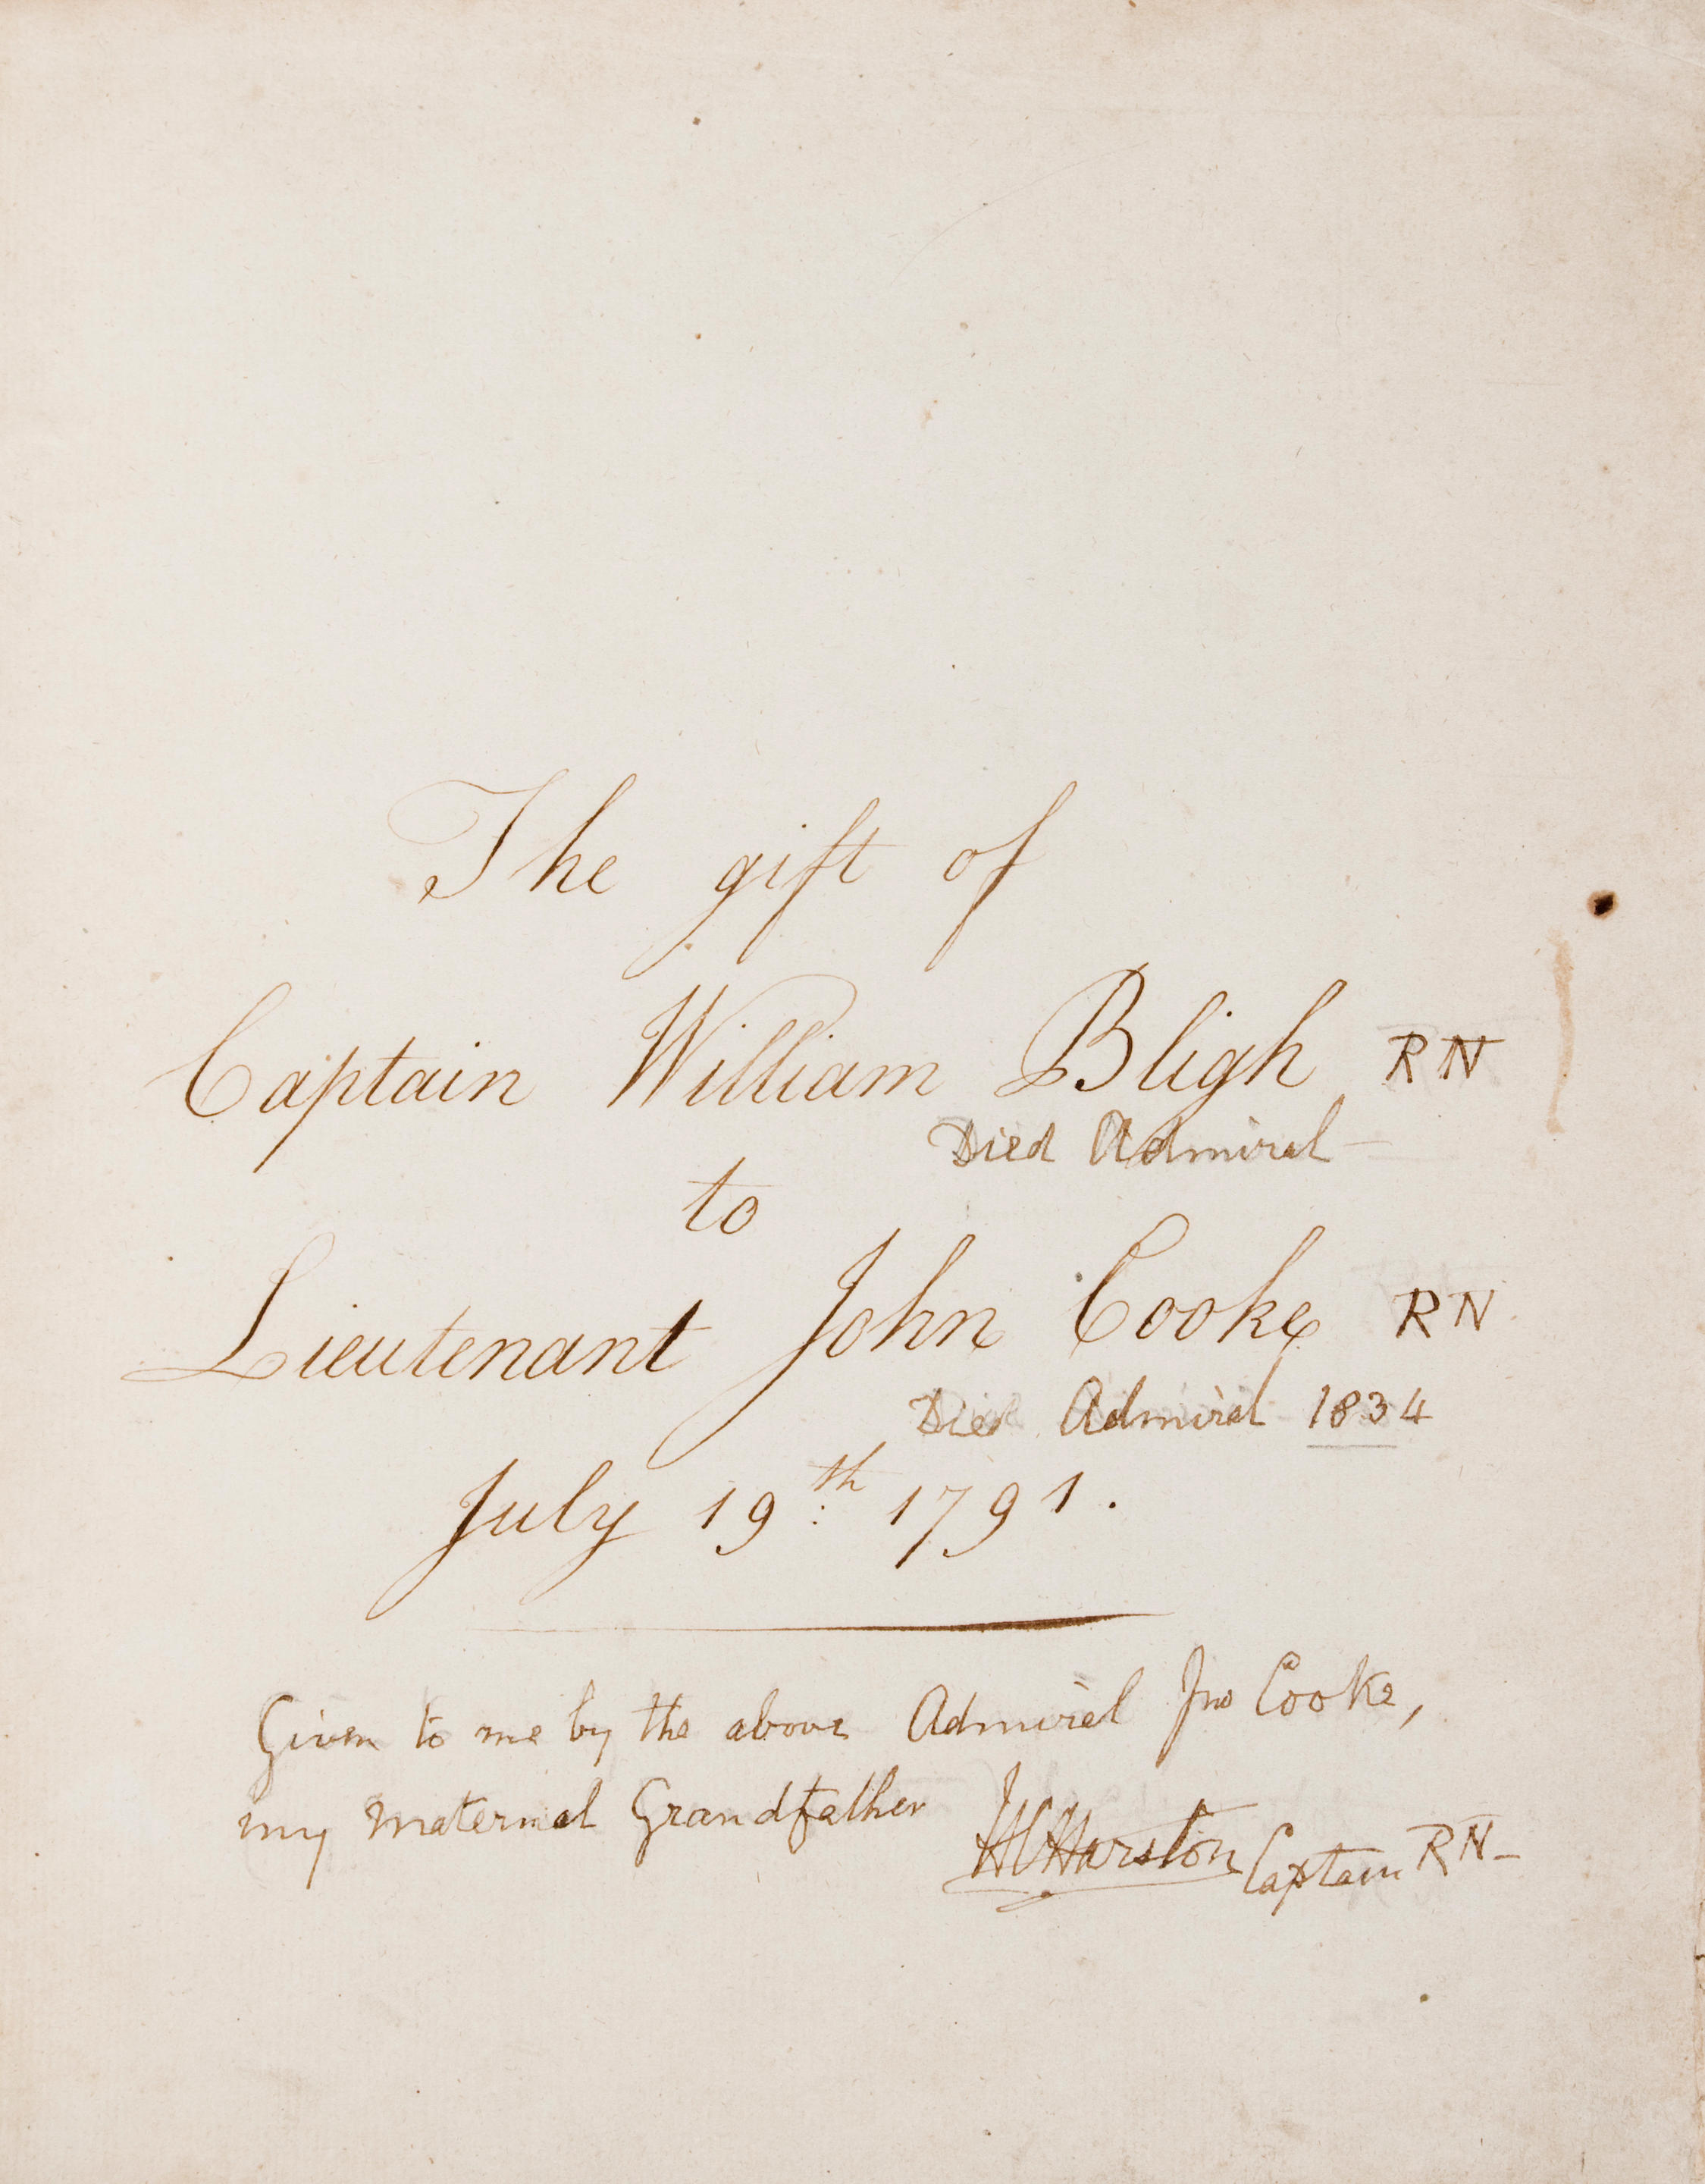 The gift of
Captain William Bligh RN
Died Admiral –
to
Lieutenant John Cooke RN
Died Admiral 1834
July 19th 1791.
Given to me by the above Admiral Jno Cooke,
my maternal Grandfather
Harston Captain RN –